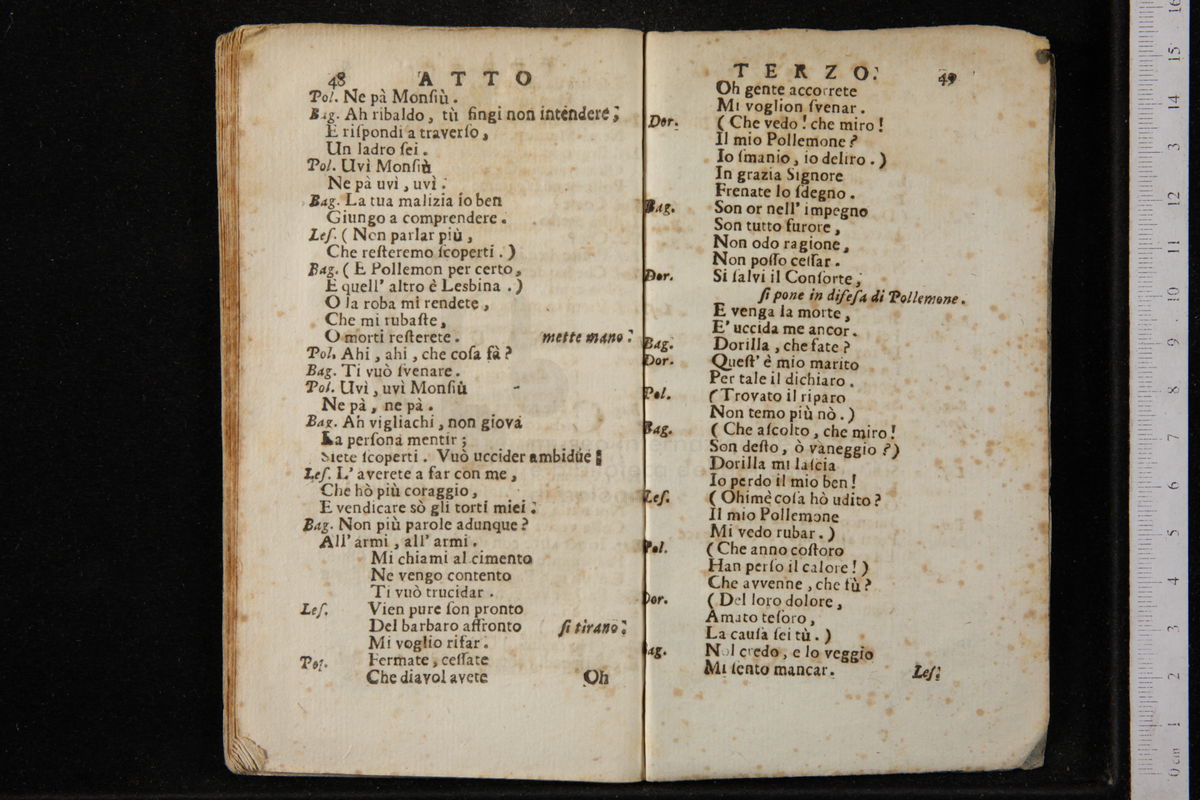 48 ATTO
Pol. Ne pà Monſiù.
Bag. Ah ribaldo, tù fingi non intendere;
E riſpondi a traverſo,
Un ladro ſei.
Pol. Uvì Monſiù
Ne pà uvì, uvì.
Bag. La tua malizia io ben
Giungo a comprendere.
Leſ. (Non parlar più,
Che reſteremo ſcoperti.)
Bag. (E Pollemon per certo,
E quell' altro è Lesbina.)
O la roba mi rendete,
Che mi rubaſte,
O morti reſterete. mette mano.
Pol. Ahi, ahi, che coſa fà?
Bag. Ti vuò ſvenare.
Pol. Uvì, uvì Monſiù
Ne pà, ne pà.
Bag. Ah vigliachi, non giova
La perſona mentir;
Siete ſcoperti. Vuò uccider ambidúe;
Leſ. L' averete a far con me,
Che hò più coraggio,
E vendicare sò gli torti miei.
Bag. Non più parole adunque?
All' armi, all' armi.
Mi chiami al cimento
Ne vengo contento
Ti vuò trucidar.
Leſ. Vien pure ſon pronto
Del barbaro affronto ſi tirano.
Mi voglio rifar.
Pol. Fermate, ceſſate
Che diavol avete Oh
TERZO. 49
Oh gente accorrete
Mi voglion ſvenar.
Dor. (Che vedo! che miro!
Il mio Pollemone?
Io ſmanio, io deliro.)
In grazia Signore
Frenate lo ſdegno.
Bag. Son or nell' impegno
Son tutto furore,
Non odo ragione,
Non poſſo ceſſar.
Dor. Si ſalvi il Conſorte,
ſi pone in difeſa di Pollemone.
E venga la morte,
E' uccida me ancor.
Bag. Dorilla, che fate?
Dor. Queſt' è mio marito
Per tale il dichiaro.
Pol. (Trovato il riparo
Non temo più nò.)
Bag. (Che aſcolto, che miro!
Son deſto, ò vaneggio?)
Dorilla mi laſcia
Io perdo il mio ben!
Leſ. (Ohimè coſa hò udito?
Il mio Pollemone
Mi vedo rubar.)
Pol. (Che anno coſtoro
Han perſo il calore!)
Che avvenne, che fù?
Dor. (Del loro dolore,
Amato teſoro,
La cauſa ſei tù.)
Bag. Nol credo, e lo veggio
Mi ſento mancar. Leſ.